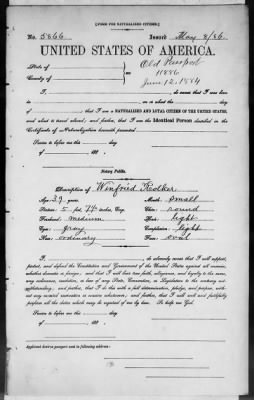 [FORM FOR NATURALIZED CITIZEN.]
No. 5866 Issued May 8/86
UNITED STATES OF AMERICA.
State of Old Passport
County of 11886
June 12, 1884
I, do swear that I was born
in on or about the day of
, that I am a NATURALIZED AND LOYAL CITIZEN OF THE UNITED STATES,
and about to travel abroad; and further, that I am the Identical Person described in the
Certificate of Naturalization herewith presented.
Sworn to before me this
day of 188 .
Notary Public.
Description of Winfried
Age: 39 years. Mouth: small
Stature: 5 feet inches, Eng. Chin: round
Forehead: medium Hair: light
Eyes: gray Complexion: light
Nose: ordinary Face: oval
I, , do solemnly swear that I will support,
protect, and defend the Constitution and Government of the United States against all enemies,
whether domestic or foreign; and that I will bear true faith, allegiance, and loyalty to the same,
any ordinance, resolution, or law of any State, Convention, or Legislature to the contrary not-
withstanding; and further, that I do this with a full determination, pledge, and purpose, with-
out any mental reservation or evasion whatsoever; and further, that I will well and faithfully
perform all the duties which may be required of me by law. So help me God.
Sworn to before me this
day of 188 .
Applicant desires passport sent to following address: